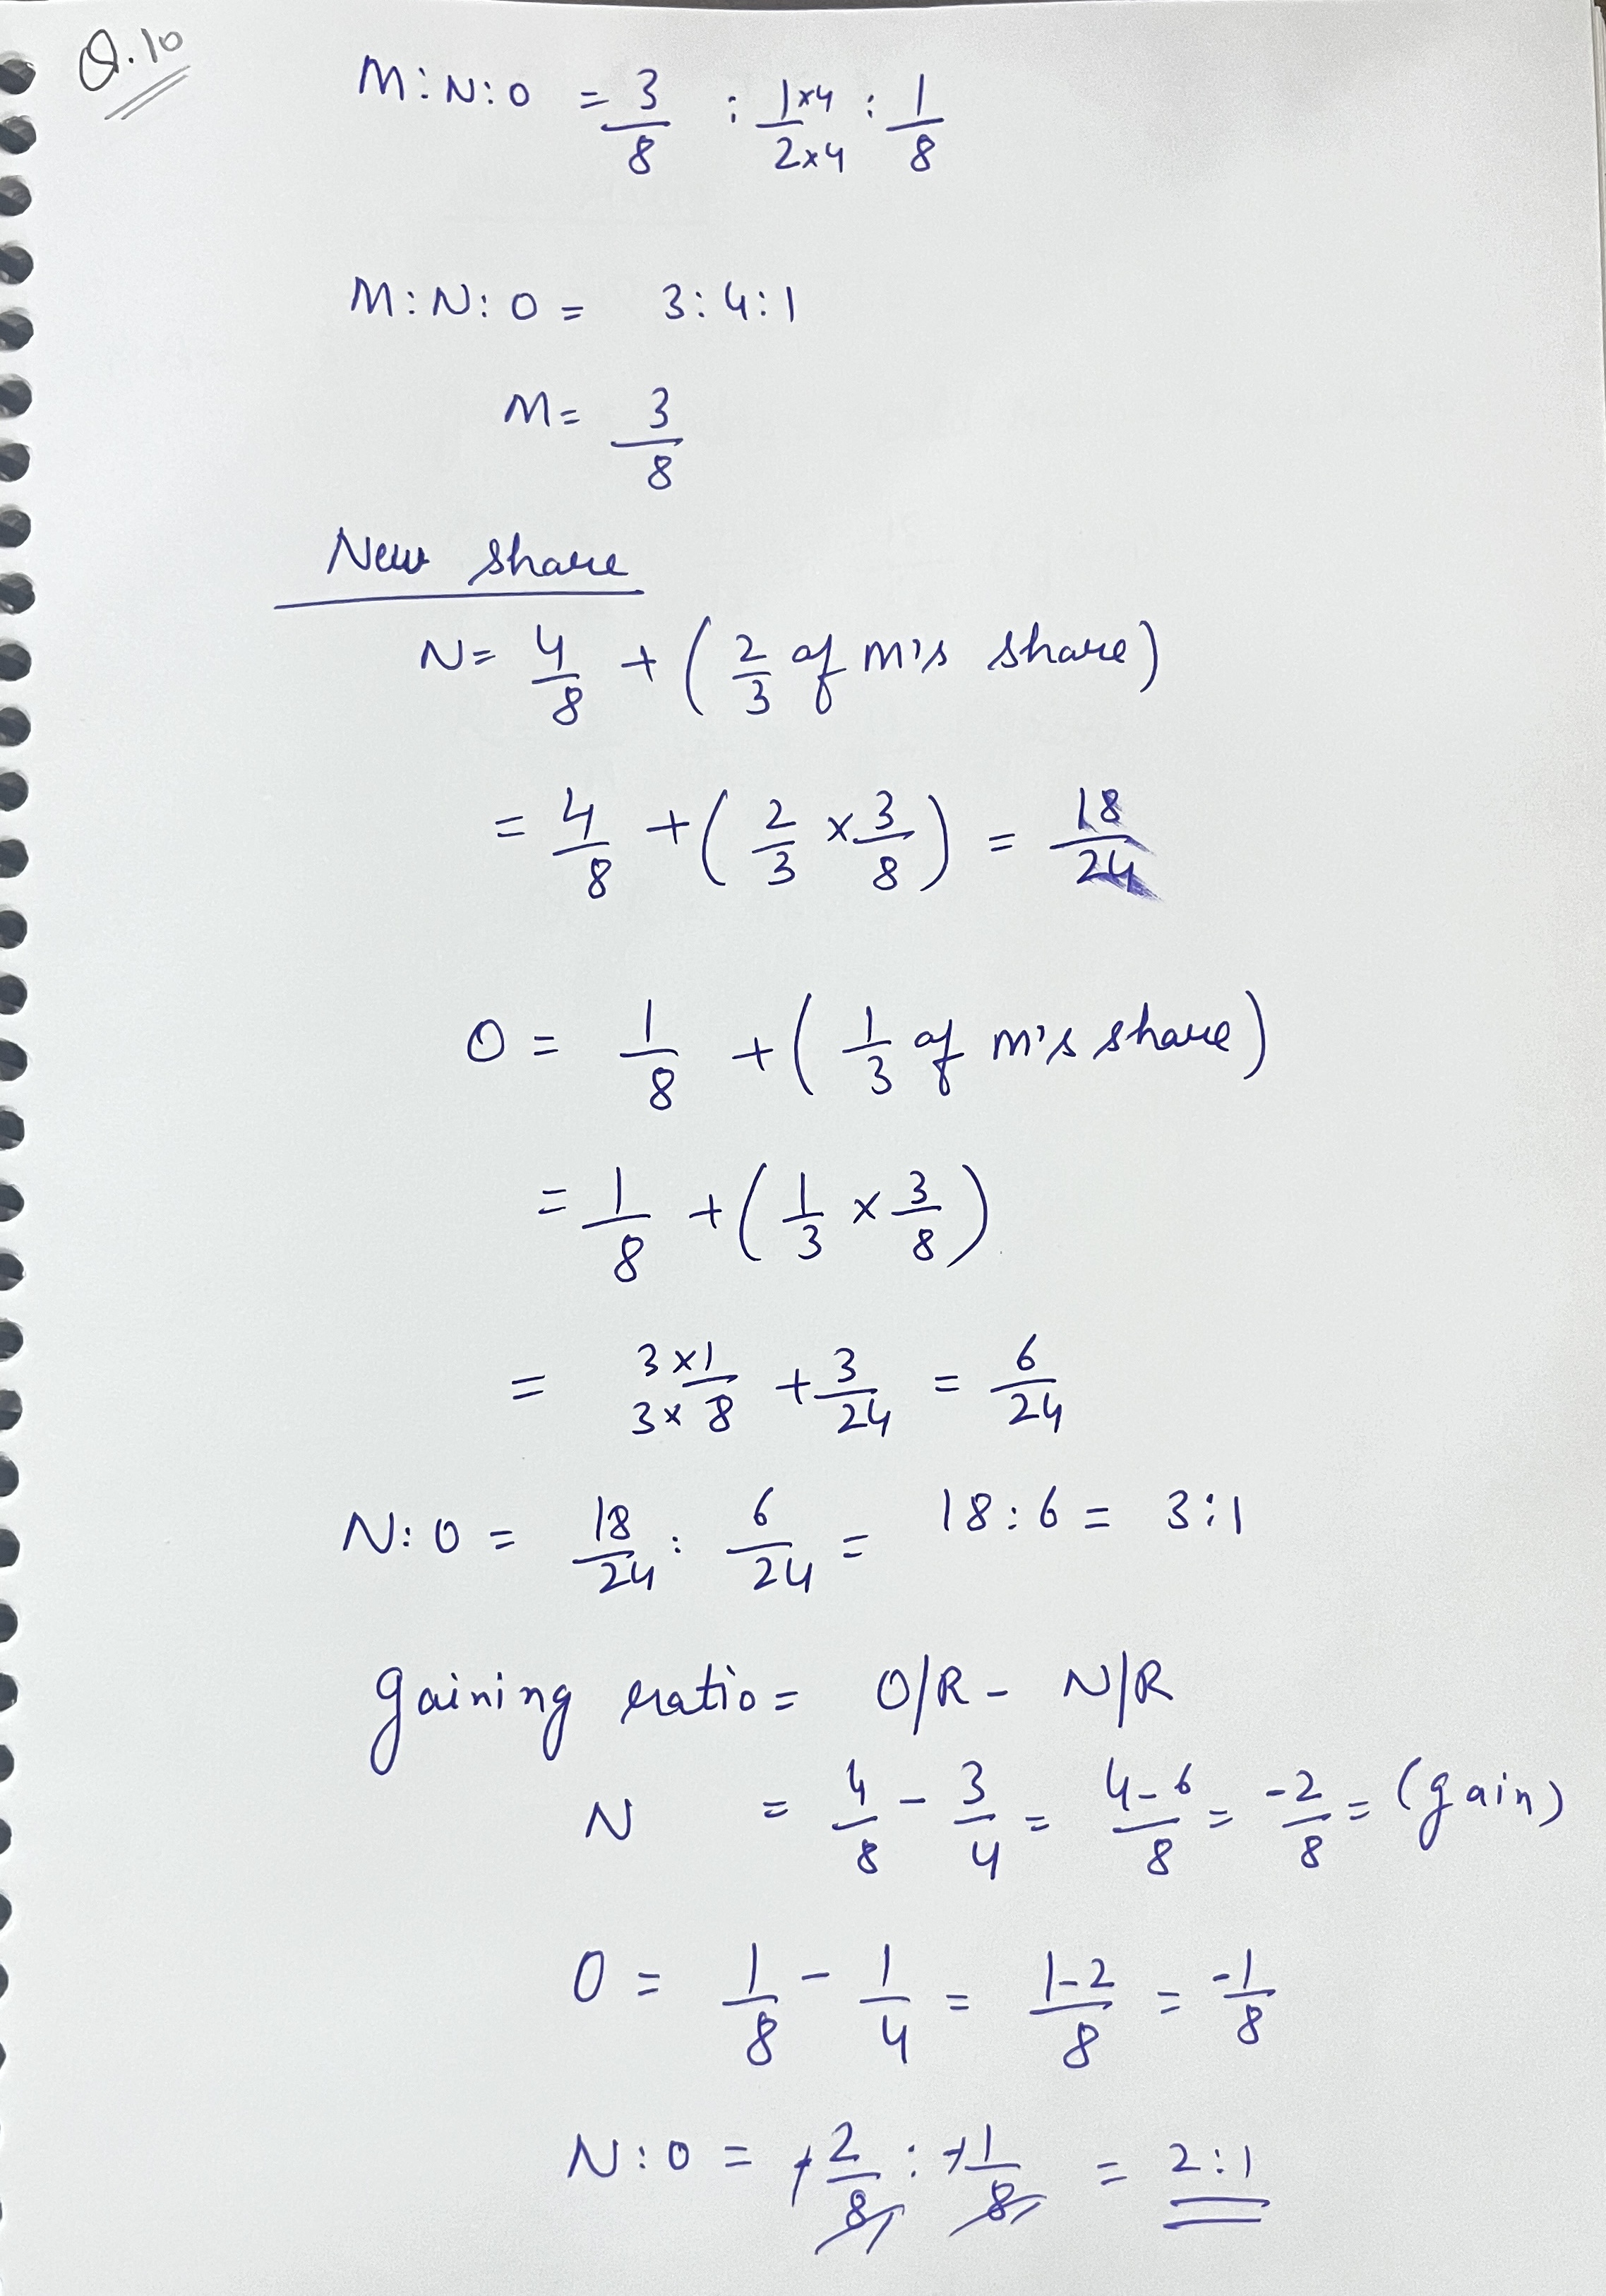 Q.10
M:N:O = 3/8 : 1×4/2×4 : 1/8
M:N:O = 3:4:1
M = 3/8
New share
N = 4/8 + (2/3 of M's share)
= 4/8 + (2/3 × 3/8) = 18/24
O = 1/8 + (1/3 of M's share)
= 1/8 + (1/3 × 3/8)
= 3×1/3×8 + 3/24 = 6/24
N:O = 18/24 : 6/24 = 18:6 = 3:1
gaining ratio = O/R - N/R
N = 4/8 - 3/4 = 4-6/8 = -2/8 = (gain)
O = 1/8 - 1/4 = 1-2/8 = -1/8
N:O = -2/8 : -1/8 = 2:1